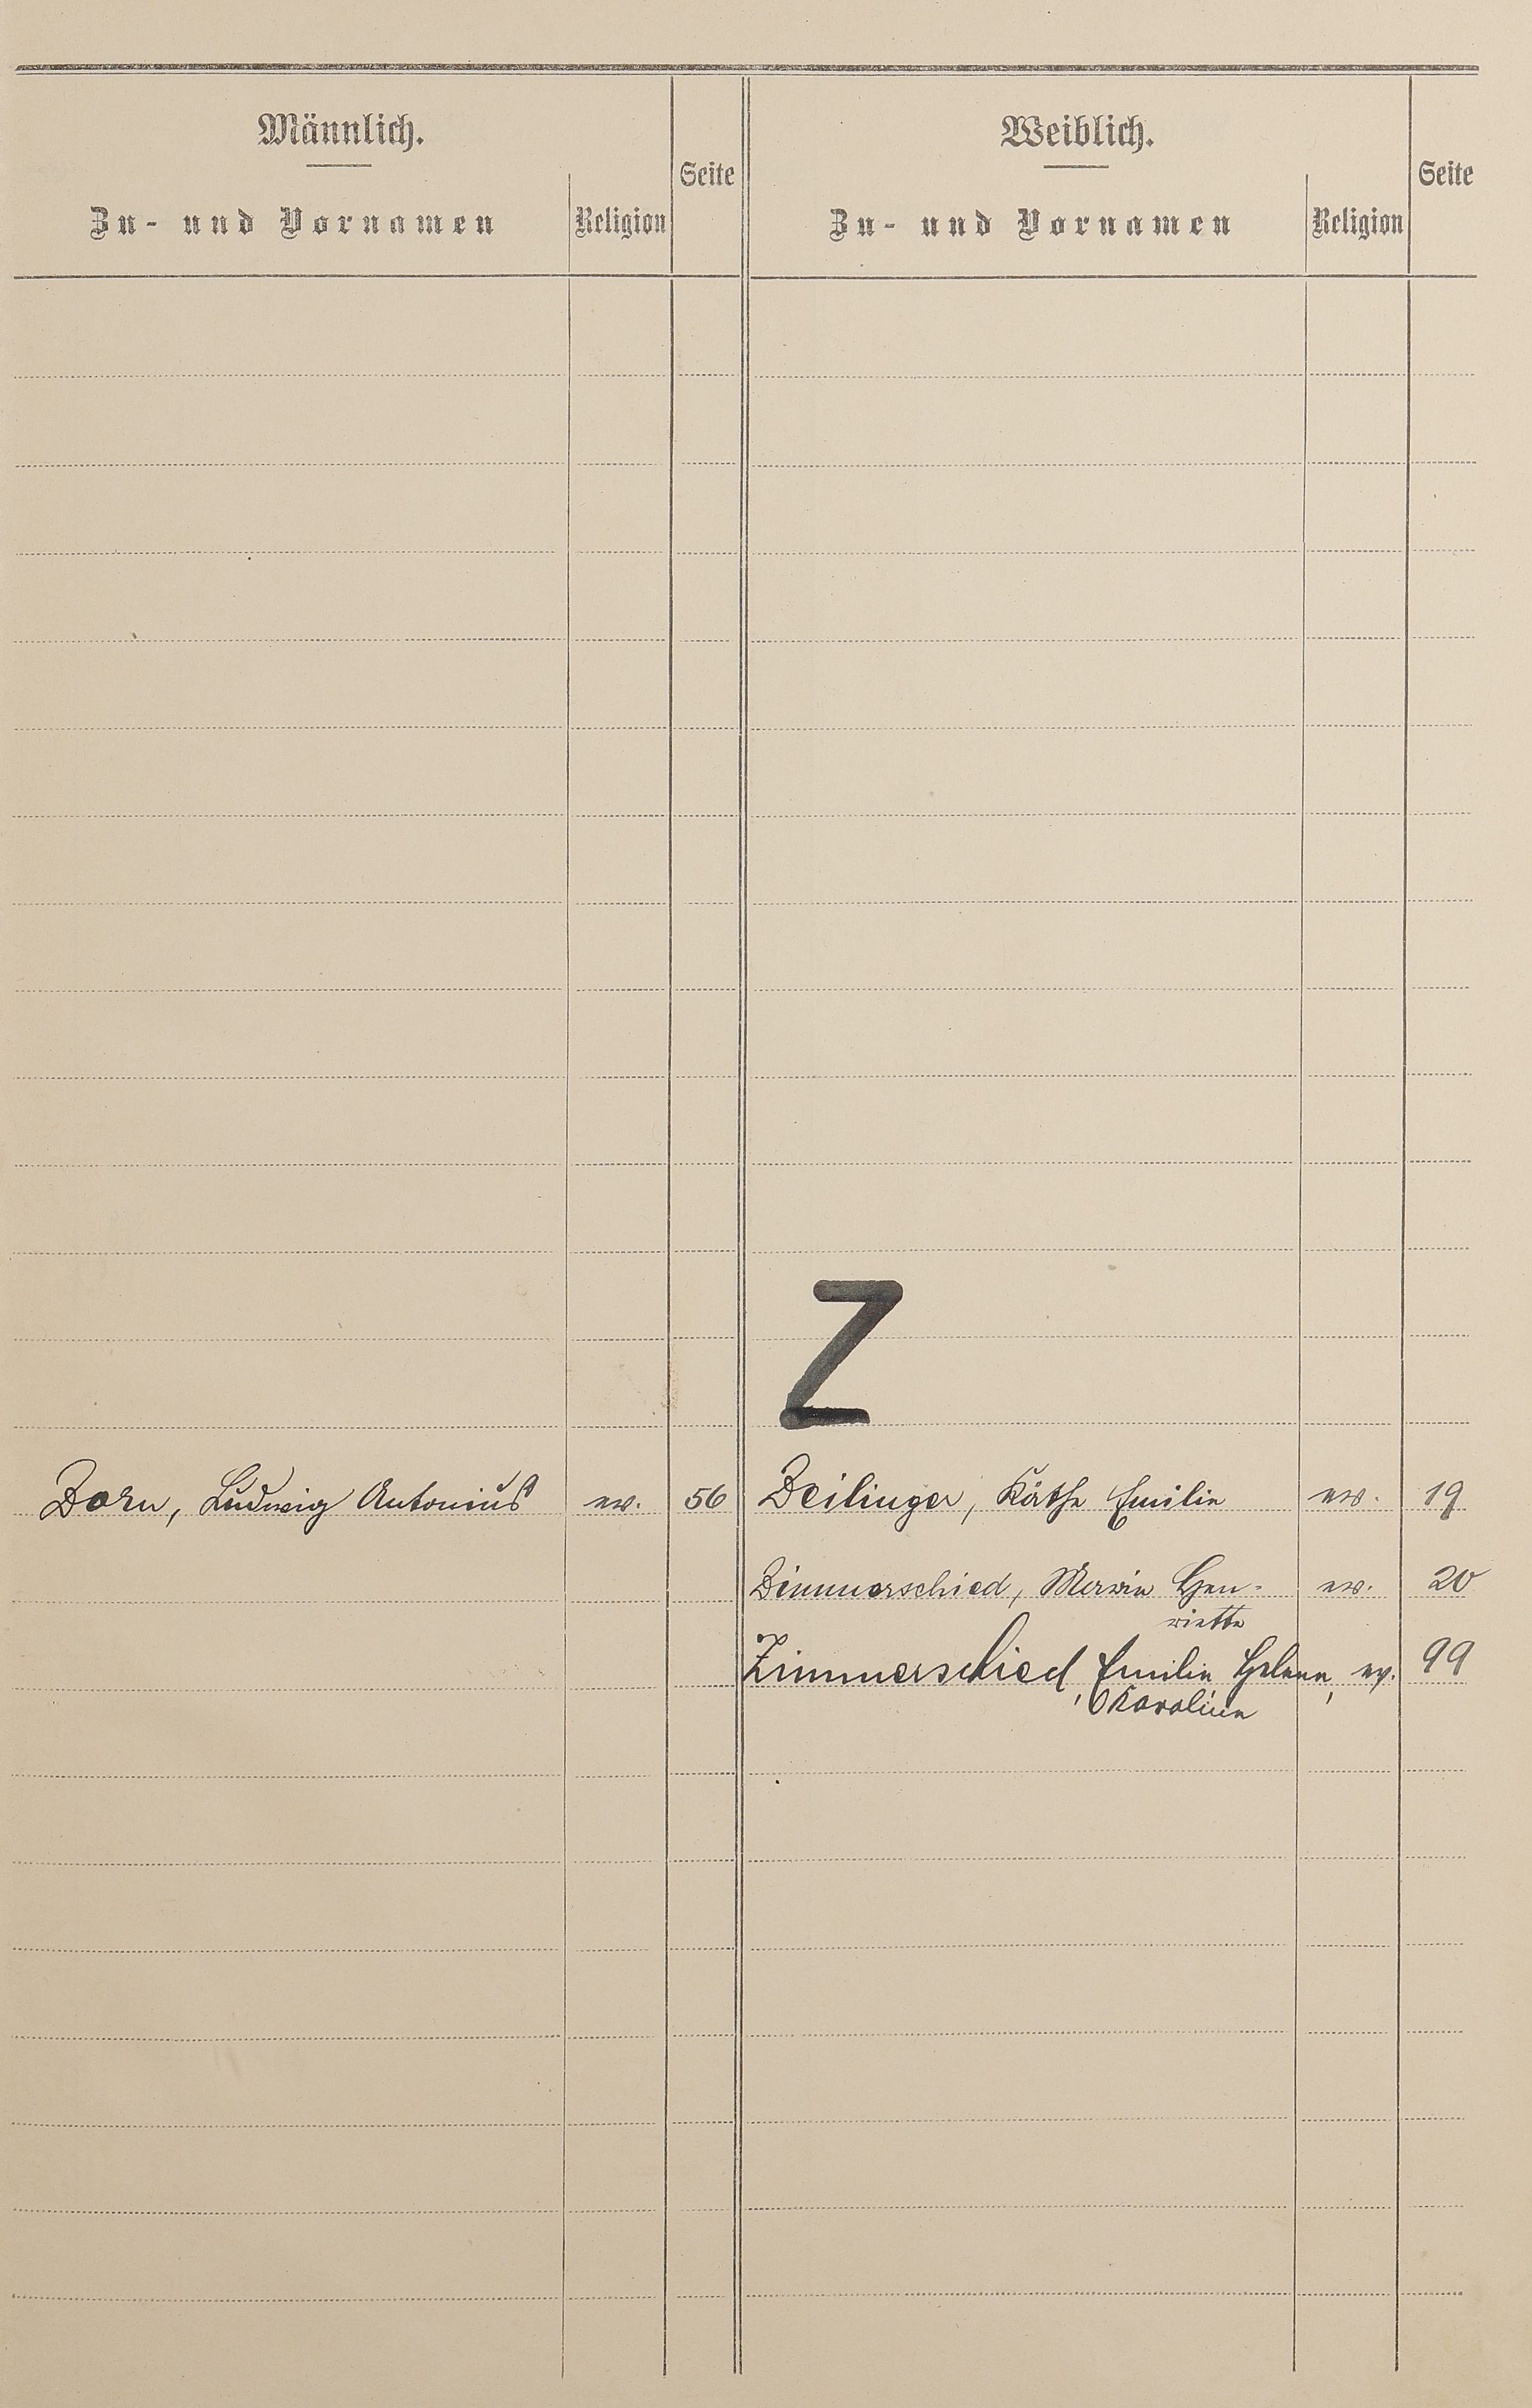 Männlich.
Zu- und Vornamen
Religion
Seite
Weiblich.
Zu- und Vornamen
Religion
Seite
Z
Zorn, Ludwig Antonius ev. 56
Zeilinger, Käthe Emilie ev. 19
Zimmerschied, Marie Hen-
riette ev. 20
Zimmerschied, Emilie, Helene, ev. 99
Karoline